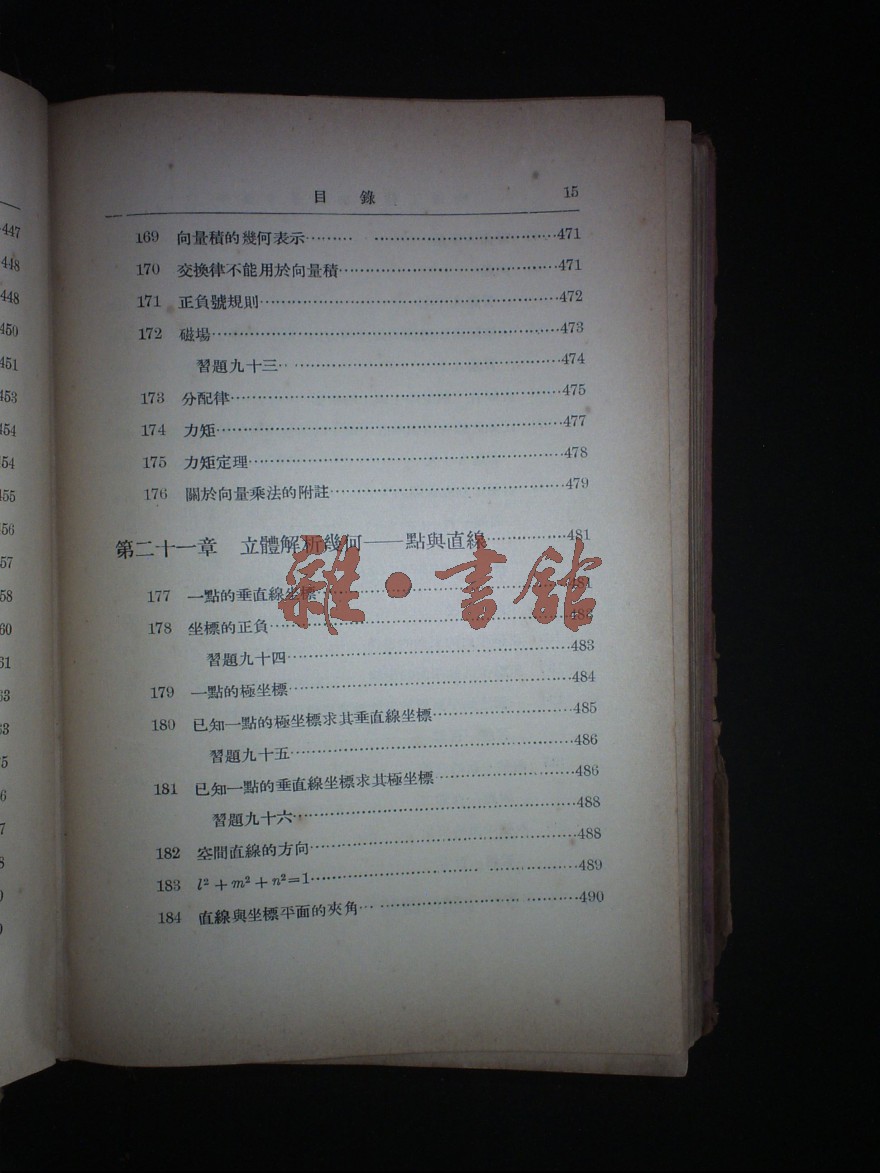 目錄 15
169 向量積的幾何表示……… ……………………471
170 交換律不能用於向量積……………………………471
171 正負號規則…………………………………………472
172 磁場…………………………………………………473
習題九十三……………………………………………474
173 分配律………………………………………………475
174 力矩…………………………………………………477
175 力矩定理……………………………………………478
176 關於向量乘法的附註………………………………479
第二十一章 立體解析幾何——點與直線…………481
177 一點的垂直線坐標…………………………………481
178 坐標的正負…………………………………………482
習題九十四……………………………………………483
179 一點的極坐標………………………………………484
180 已知一點的極坐標求其垂直線坐標………………485
習題九十五……………………………………………486
181 已知一點的垂直線坐標求其極坐標………………486
習題九十六……………………………………………488
182 空間直線的方向……………………………………488
183 l²+m²+n²=1…………………………………………489
184 直線與坐標平面的夾角……………………………490
雜·書館
447
448
448
450
451
453
454
454
455